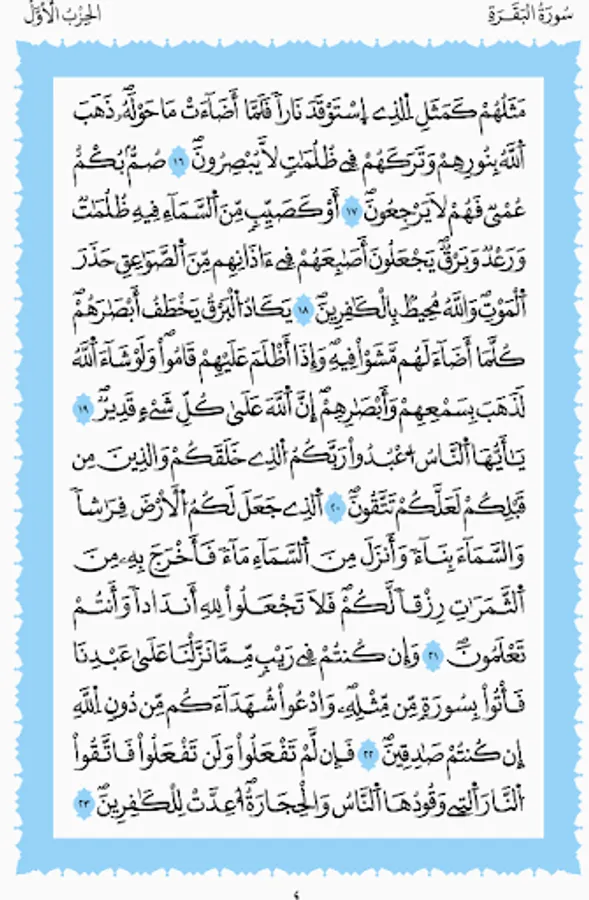 سُورَةُ الْبَقَرَةِ
الحِزْبُ الْأَوَّلُ
مَثَلُهُمْ كَمَثَلِ اِ۬لذِے اِ۪سْتَوْقَدَ نَاراٗ فَلَمَّآ أَضَآءَتْ مَا حَوْلَهُۥ ذَهَبَ
اَ۬للَّهُ بِنُورِهِمْ وَتَرَكَهُمْ فِے ظُلُمَٰتٖ لَّا يُبْصِرُونَۖ ١٦ صُمُّۢ بُكْمٌ
عُمْيٞ فَهُمْ لَا يَرْجِعُونَۖ ١٧ أَوْ كَصَيِّبٖ مِّنَ اَ۬لسَّمَآءِ فِيهِ ظُلُمَٰتٞ
وَرَعْدٞ وَبَرْقٞۖ يَجْعَلُونَ أَصَٰبِعَهُمْ فِےٓ ءَاذَانِهِم مِّنَ اَ۬لصَّوَٰعِقِ حَذَرَ
اَ۬لْمَوْتِۖ وَاللَّهُ مُحِيطُۢ بِالْكَٰفِرِينَۖ ١٨ يَكَادُ اُ۬لْبَرْقُ يَخْطَفُ أَبْصَٰرَهُمْۖ
كُلَّمَآ أَضَآءَ لَهُم مَّشَوْاْ فِيهِۖ وَإِذَآ أَظْلَمَ عَلَيْهِمْ قَامُواْۖ وَلَوْ شَآءَ اَ۬للَّهُ
لَذَهَبَ بِسَمْعِهِمْ وَأَبْصَٰرِهِمْۖ إِنَّ اَ۬للَّهَ عَلَىٰ كُلِّ شَےْءٖ قَدِيرٞۖ ١٩
يَٰٓأَيُّهَا اَ۬لنَّاسُ اُ۟عْبُدُواْ رَبَّكُمُ اُ۬لذِے خَلَقَكُمْ وَالذِينَ مِن
قَبْلِكُمْ لَعَلَّكُمْ تَتَّقُونَۖ ٢٠ اَ۬لذِے جَعَلَ لَكُمُ اُ۬لْأَرْضَ فِرَٰشاٗ
وَالسَّمَآءَ بِنَآءٗ وَأَنزَلَ مِنَ اَ۬لسَّمَآءِ مَآءٗ فَأَخْرَجَ بِهِۦ مِنَ
اَ۬لثَّمَرَٰتِ رِزْقاٗ لَّكُمْۖ فَلَا تَجْعَلُواْ لِلهِ أَندَاداٗ وَأَنتُمْ
تَعْلَمُونَۖ ٢١ وَإِن كُنتُمْ فِے رَيْبٖ مِّمَّا نَزَّلْنَا عَلَىٰ عَبْدِنَا
فَأْتُواْ بِسُورَةٖ مِّن مِّثْلِهِۦ وَادْعُواْ شُهَدَآءَكُم مِّن دُونِ اِ۬للَّهِ
إِن كُنتُمْ صَٰدِقِينَۖ ٢٢ فَإِن لَّمْ تَفْعَلُواْ وَلَن تَفْعَلُواْ فَاتَّقُواْ
اُ۬لنَّارَ اَ۬لتِے وَقُودُهَا اَ۬لنَّاسُ وَالْحِجَارَةُۖ أُعِدَّتْ لِلْكَٰفِرِينَۖ ٢٣
٤